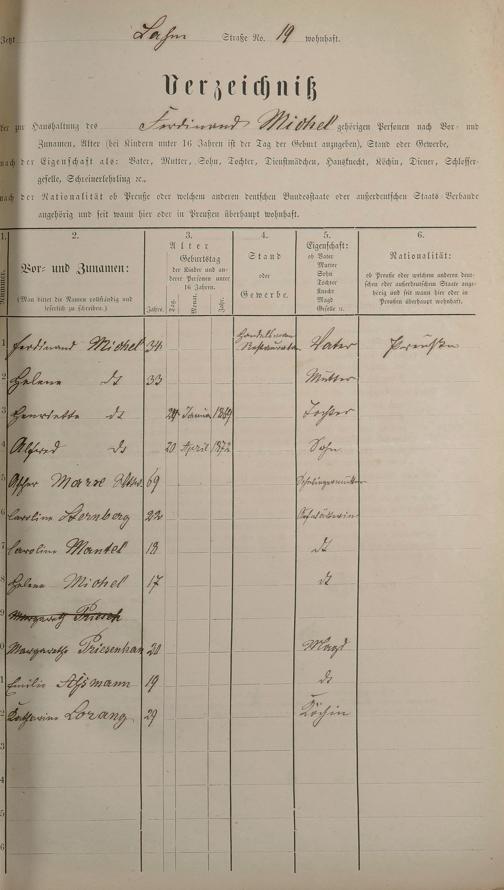 Jetzt Lahn Straße No. 19 wohnhaft.
Verzeichniß
der zur Haushaltung des Ferdinand Michel gehörigen Personen nach Vor- und
Zunamen, Alter (bei Kindern unter 16 Jahren ist der Tag der Geburt anzugeben), Stand oder Gewerbe,
nach der Eigenschaft als: Vater, Mutter, Sohn, Tochter, Dienstmädchen, Hausknecht, Köchin, Diener, Schlosser-
geselle, Schreinerlehrling ꝛc.,
nach der Nationalität ob Preuße oder welchem anderen deutschen Bundesstaate oder außerdeutschen Staats-Verbande
angehörig und seit wann hier oder in Preußen überhaupt wohnhaft.
1. 2. 3. 4. 5. 6.
Nummer.
Vor- und Zunamen:
(Man bittet die Namen vollständig und
leserlich zu schreiben.)
Alter
Geburtstag
der Kinder und an-
derer Personen unter
16 Jahren.
Jahre. Tag. Monat. Jahr.
Stand
oder
Gewerbe.
Eigenschaft:
ob Vater
Mutter
Sohn
Tochter
Knecht
Magd
Geselle ꝛc.
Nationalität:
ob Preuße oder welchem anderen deut-
schen oder außerdeutschen Staate ange-
hörig und seit wann hier oder in
Preußen überhaupt wohnhaft.
1 Ferdinand Michel 34 Handelsmann Restaurateur Vater Preußen
2 Helene do 33 Mutter
3 Henriette do 24 Januar 1869 Tochter
4 Alfred do 20 April 1872 Sohn
5 Marx 69 Schwiegermutter
6 Caroline Sternberg 22
7 Caroline Mantel 18 do
8 Helene Michel 17 do
9 Margareth
0 Margarethe Priesenhan 20 Magd
1 Emilie Assmann 19 do
2 Katharina Lorang 29 Köchin
3
4
5
6